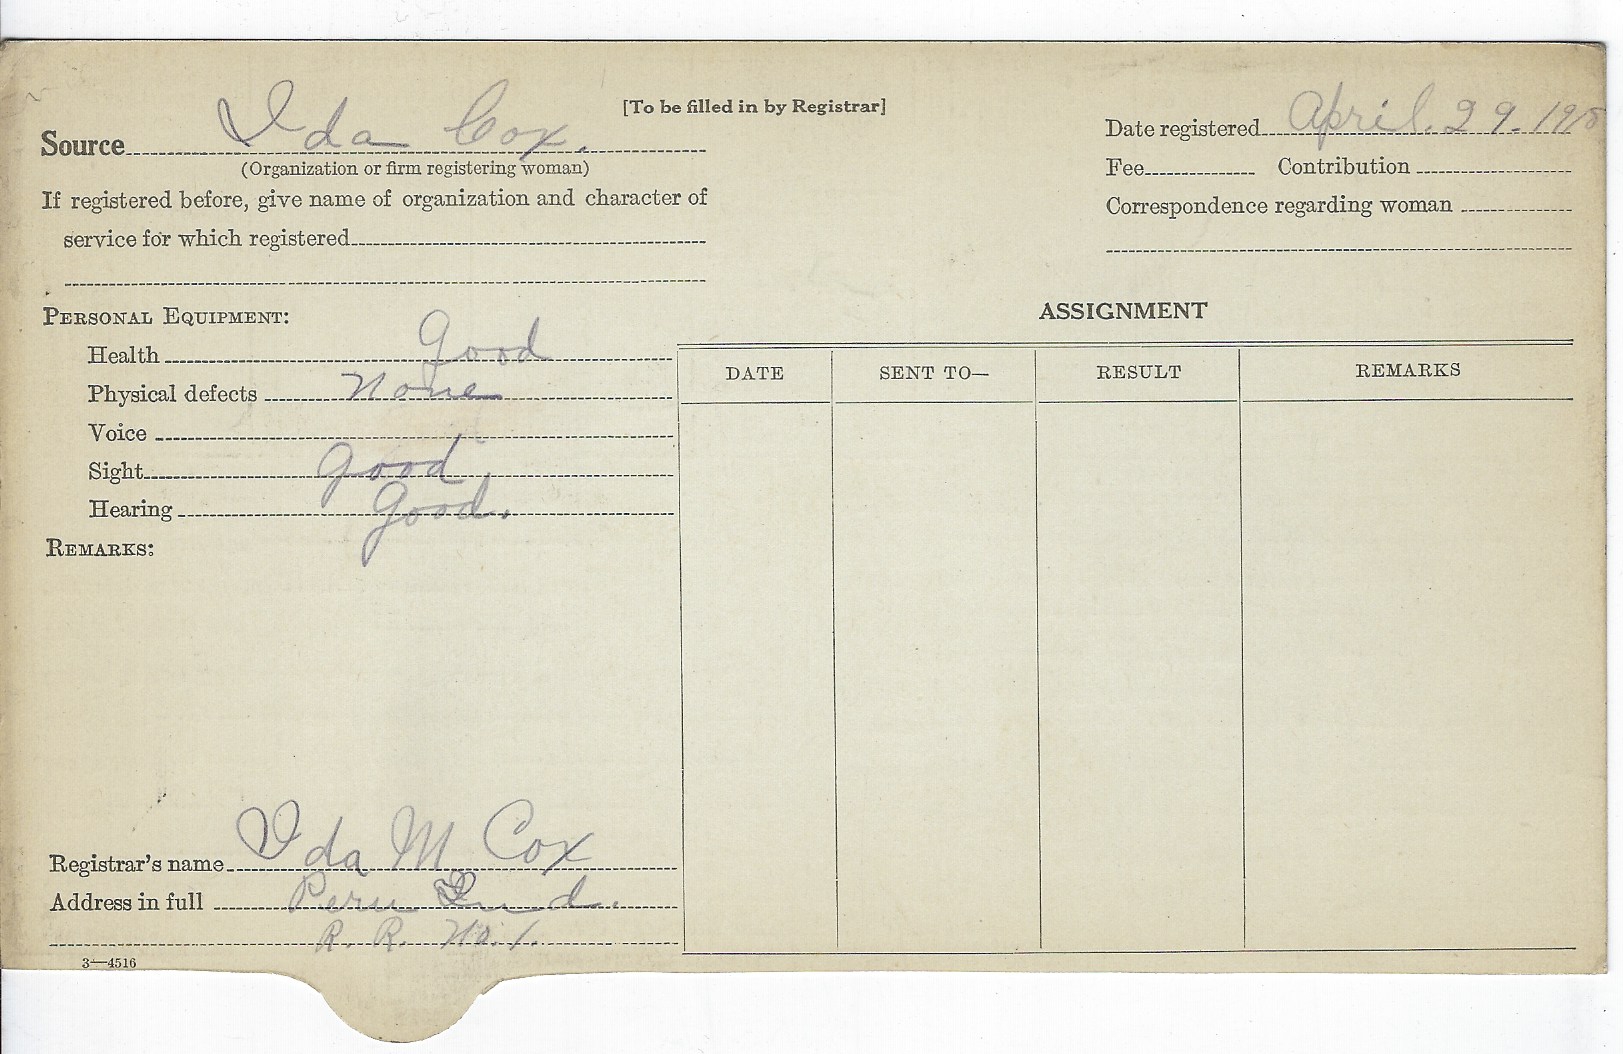 [To be filled in by Registrar]
Source Ida Cox.
(Organization or firm registering woman)
If registered before, give name of organization and character of
service for which registered
Date registered April. 29. 1918
Fee Contribution
Correspondence regarding woman
PERSONAL EQUIPMENT:
Health Good
Physical defects None
Voice
Sight Good
Hearing Good.
REMARKS:
ASSIGNMENT
DATE SENT TO— RESULT REMARKS
Registrar's name Ida M Cox
Address in full Peru Ind.
R. R. No. 1.
3—4516